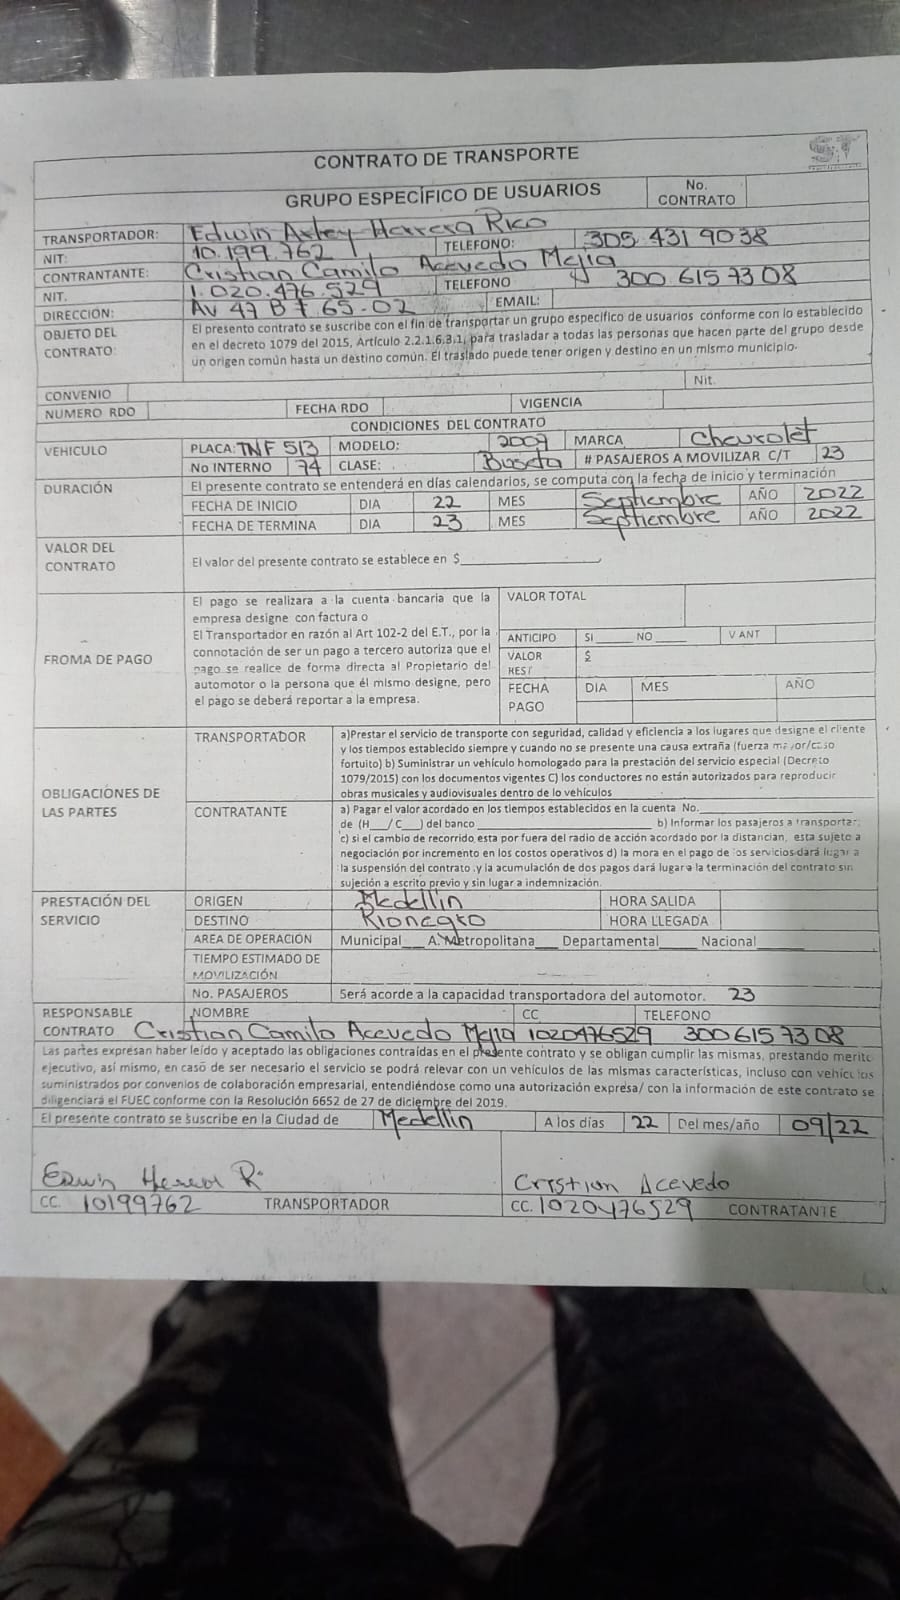 CONTRATO DE TRANSPORTE
GRUPO ESPECÍFICO DE USUARIOS No. CONTRATO
TRANSPORTADOR: Edwin Herrera Rico
NIT: 10.199.762 TELEFONO: 305 431 9038
CONTRATANTE: Cristian Camilo Acevedo Mejia
NIT. 1.020.476.529 TELEFONO 300 615 7308
DIRECCIÓN: AV 47 B # 65-02 EMAIL:
OBJETO DEL CONTRATO:
El presento contrato se suscribe con el fin de transportar un grupo especifico de usuarios conforme con lo establecido
en el decreto 1079 del 2015, Artículo 2.2.1.6.3.1, para trasladar a todas las personas que hacen parte del grupo desde
un origen común hasta un destino común. El traslado puede tener origen y destino en un mismo municipio.
CONVENIO Nit.
NUMERO RDO FECHA RDO VIGENCIA
CONDICIONES DEL CONTRATO
VEHICULO PLACA: TNF 513 MODELO: 2009 MARCA Chevrolet
No INTERNO 74 CLASE: Buseta # PASAJEROS A MOVILIZAR C/T 23
DURACIÓN El presente contrato se entenderá en días calendarios, se computa con la fecha de inicio y terminación
FECHA DE INICIO DIA 22 MES Septiembre AÑO 2022
FECHA DE TERMINA DIA 23 MES Septiembre AÑO 2022
VALOR DEL CONTRATO
El valor del presente contrato se establece en $
FROMA DE PAGO
El pago se realizara a la cuenta bancaria que la
empresa designe con factura o
El Transportador en razón al Art 102-2 del E.T., por la
connotación de ser un pago a tercero autoriza que el
pago se realice de forma directa al Propietario del
automotor o la persona que él mismo designe, pero
el pago se deberá reportar a la empresa.
VALOR TOTAL
ANTICIPO SI NO V ANT
VALOR REST $
FECHA PAGO DIA MES AÑO
OBLIGACIONES DE LAS PARTES
TRANSPORTADOR
a)Prestar el servicio de transporte con seguridad, calidad y eficiencia a los lugares que designe el cliente
y los tiempos establecido siempre y cuando no se presente una causa extraña (fuerza mayor/caso
fortuito) b) Suministrar un vehículo homologado para la prestación del servicio especial (Decreto
1079/2015) con los documentos vigentes C) los conductores no están autorizados para reproducir
obras musicales y audiovisuales dentro de lo vehículos
CONTRATANTE
a) Pagar el valor acordado en los tiempos establecidos en la cuenta No.
de (H___/ C___) del banco b) Informar los pasajeros a transportar;
c) si el cambio de recorrido esta por fuera del radio de acción acordado por la distancian, esta sujeto a
negociación por incremento en los costos operativos d) la mora en el pago de los servicios dará lugar a
la suspensión del contrato ,y la acumulación de dos pagos dará lugar a la terminación del contrato sin
sujeción a escrito previo y sin lugar a indemnización.
PRESTACIÓN DEL SERVICIO
ORIGEN Medellin HORA SALIDA
DESTINO Rionegro HORA LLEGADA
AREA DE OPERACIÓN Municipal___ A. Metropolitana___ Departamental____ Nacional____
TIEMPO ESTIMADO DE MOVILIZACIÓN
No. PASAJEROS Será acorde a la capacidad transportadora del automotor. 23
RESPONSABLE CONTRATO NOMBRE CC TELEFONO
Cristian Camilo Acevedo Mejia 1020476529 300 615 7308
Las partes expresan haber leído y aceptado las obligaciones contraídas en el presente contrato y se obligan cumplir las mismas, prestando merito
ejecutivo, así mismo, en caso de ser necesario el servicio se podrá relevar con un vehículos de las mismas características, incluso con vehículos
suministrados por convenios de colaboración empresarial, entendiéndose como una autorización expresa/ con la información de este contrato se
diligenciará el FUEC conforme con la Resolución 6652 de 27 de diciembre del 2019.
El presente contrato se suscribe en la Ciudad de Medellin A los días 22 Del mes/año 09/22
Edwin R. Cristian Acevedo
CC. 10199762 TRANSPORTADOR CC. 1020476529 CONTRATANTE